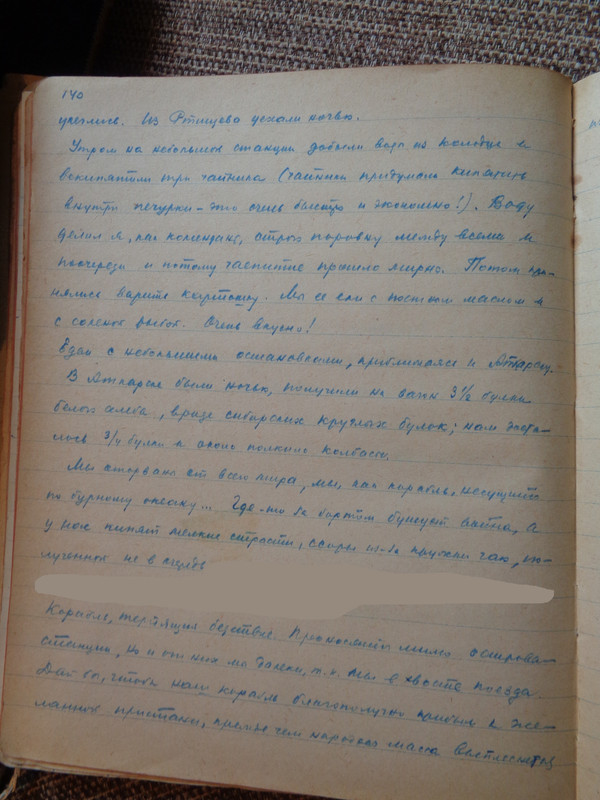 140
улеглись. Из Ртищева уехали ночью.
Утром на небольшой станции добыли воды из колодца и
вскипятили три чайника (чайники придумали кипятить
внутри печурки – это очень быстро и экономно!). Воду
делил я, как комендант, строго поровну между всеми и
поочереди и потому чаепитие прошло мирно. Потом при-
нялись варить картошку. Мы её ели с постным маслом и
с соленой рыбой. Очень вкусно!
Едем с небольшими остановками, приближаясь к Аткарску.
В Аткарске были ночью, получили на вагон 3 1/2 булки
белого хлеба, вроде сибирских круглых булок; нам доста-
лось 3/4 булки и около полкило колбасы.
Мы оторваны от всего мира, мы, как корабль, несущийся
по бурному океану... Где-то за бортом бушует война, а
у нас кипят мелкие страсти, ссоры из-за кружки чая, по-
лученной не в очередь
Корабль, терпящий бедствие. Проносятся мимо острова-
станции, но и от них мы далеки, т.к. мы в хвосте поезда.
Дай бы, чтобы наш корабль благополучно прибыл к же-
ланной пристани, прежде чем народная масса выплеснется